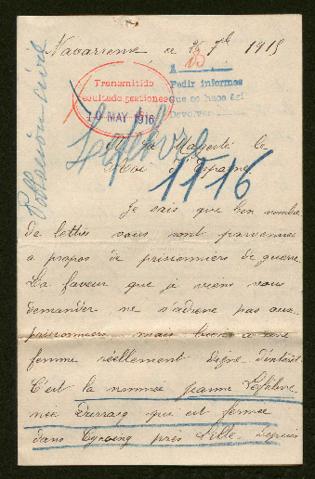 Navarrenx, ce 25 7bre 1915
Transmitido
resultado gestiones
10 MAY 1916
A
Pedir informes
Que se hace así
Devolver
Lefebvre
1716
A Sa Majesté le
Roi d'Espagne
Je sais que bon nombre
de lettres vous sont parvenues
à propos de prisonniers de guerre.
La faveur que je viens vous
demander ne s'adresse pas aux
prisonniers mais à une
femme réellement digne d'intérêt.
C'est la nommée Jeanne Lefebvre
née que est fermée
dans Cysoing près Lille. Depuis